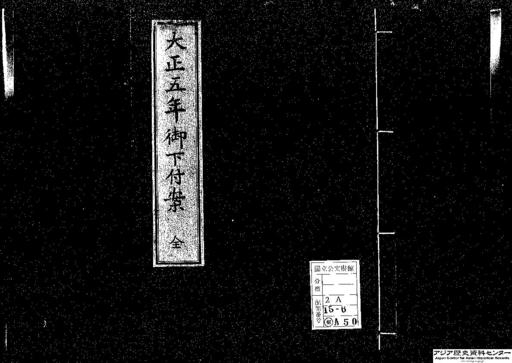 大正五年御下付案 全
國立公文書館
分類
配架番号
2A
15-8
㊵A50
アジア歴史資料センター
Japan Center for Asian Historical Records